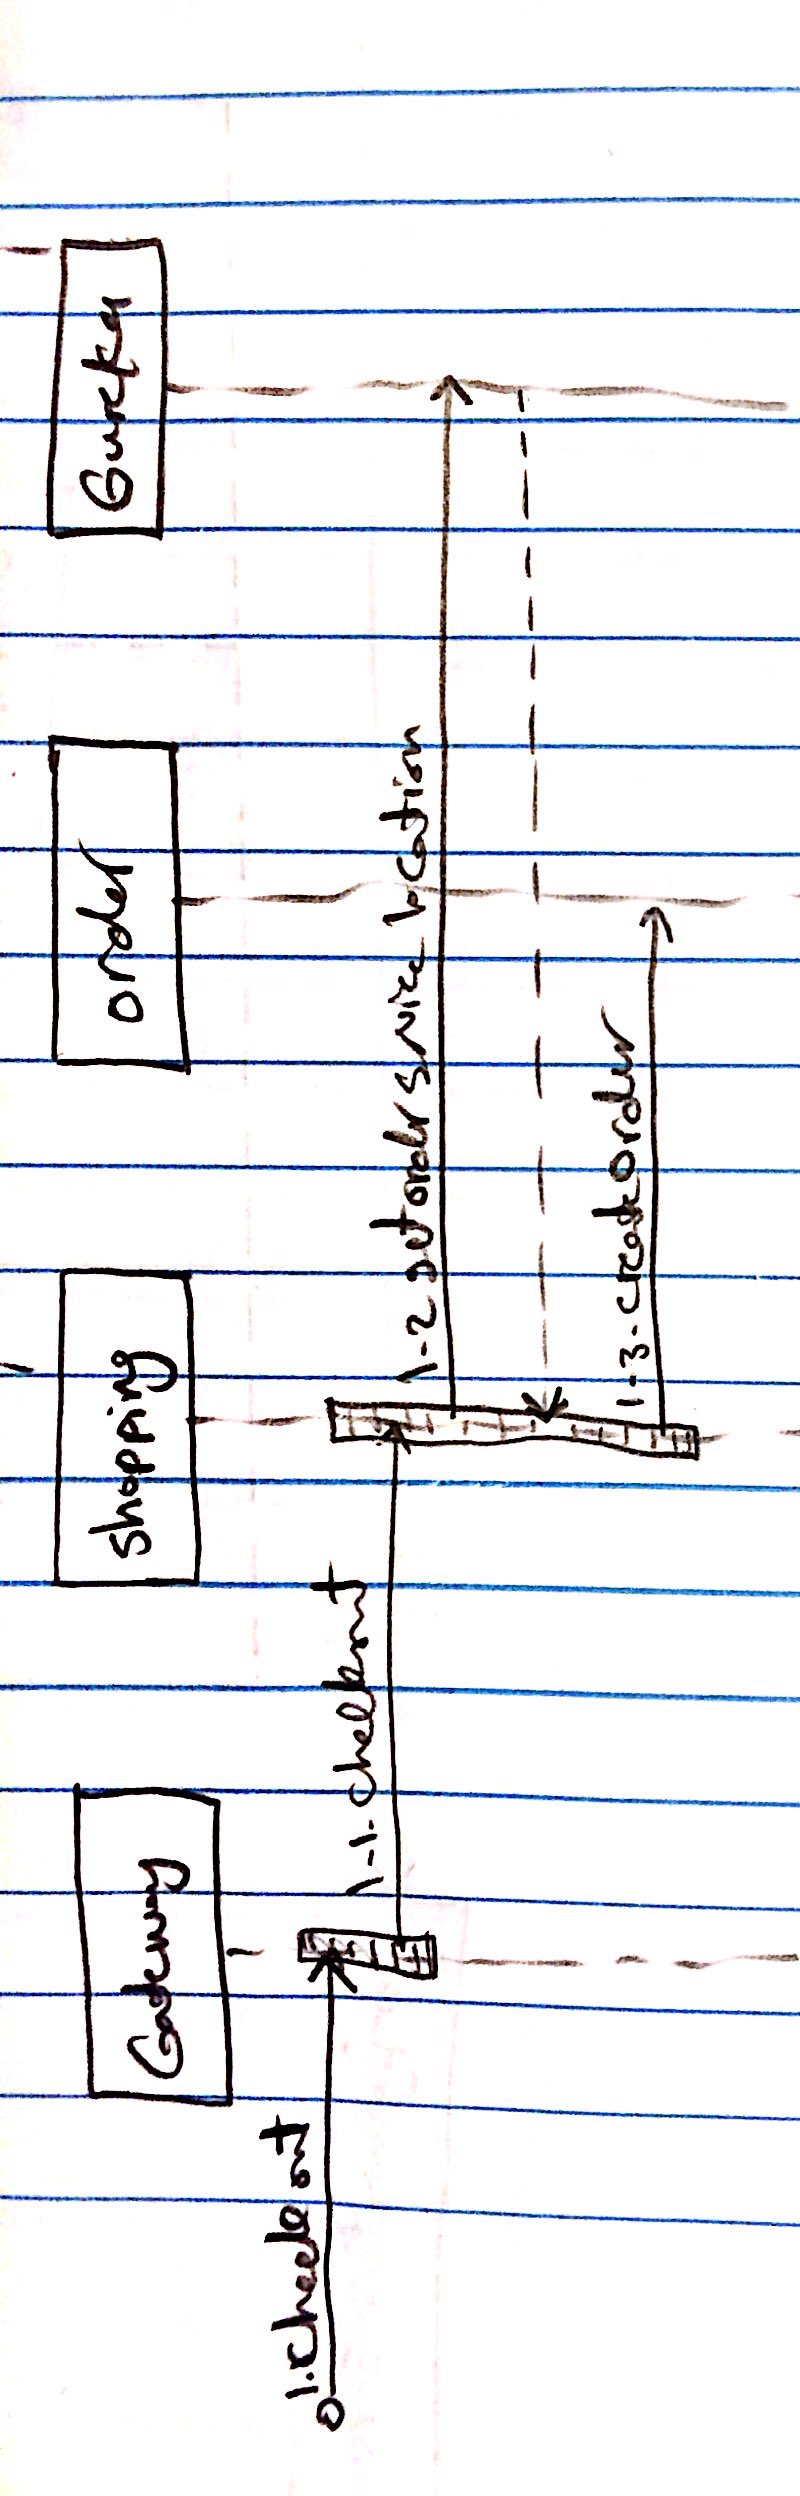 Gateway
shopping
order
Eureka
1. Checkout
1-1. checkout
1-2 get order service location
1-3. create order